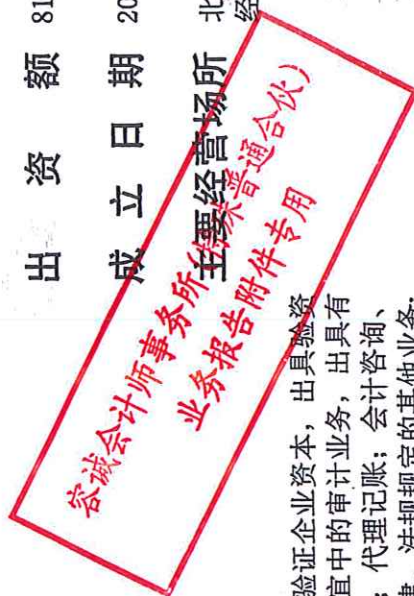 出 资 额 81
成 立 日 期 20
主要经营场所 北
经
容诚会计师事务所(特殊普通合伙)
业务报告附件专用
验证企业资本，出具验资
宜中的审计业务，出具有
；代理记账；会计咨询、
律、法规规定的其他业务